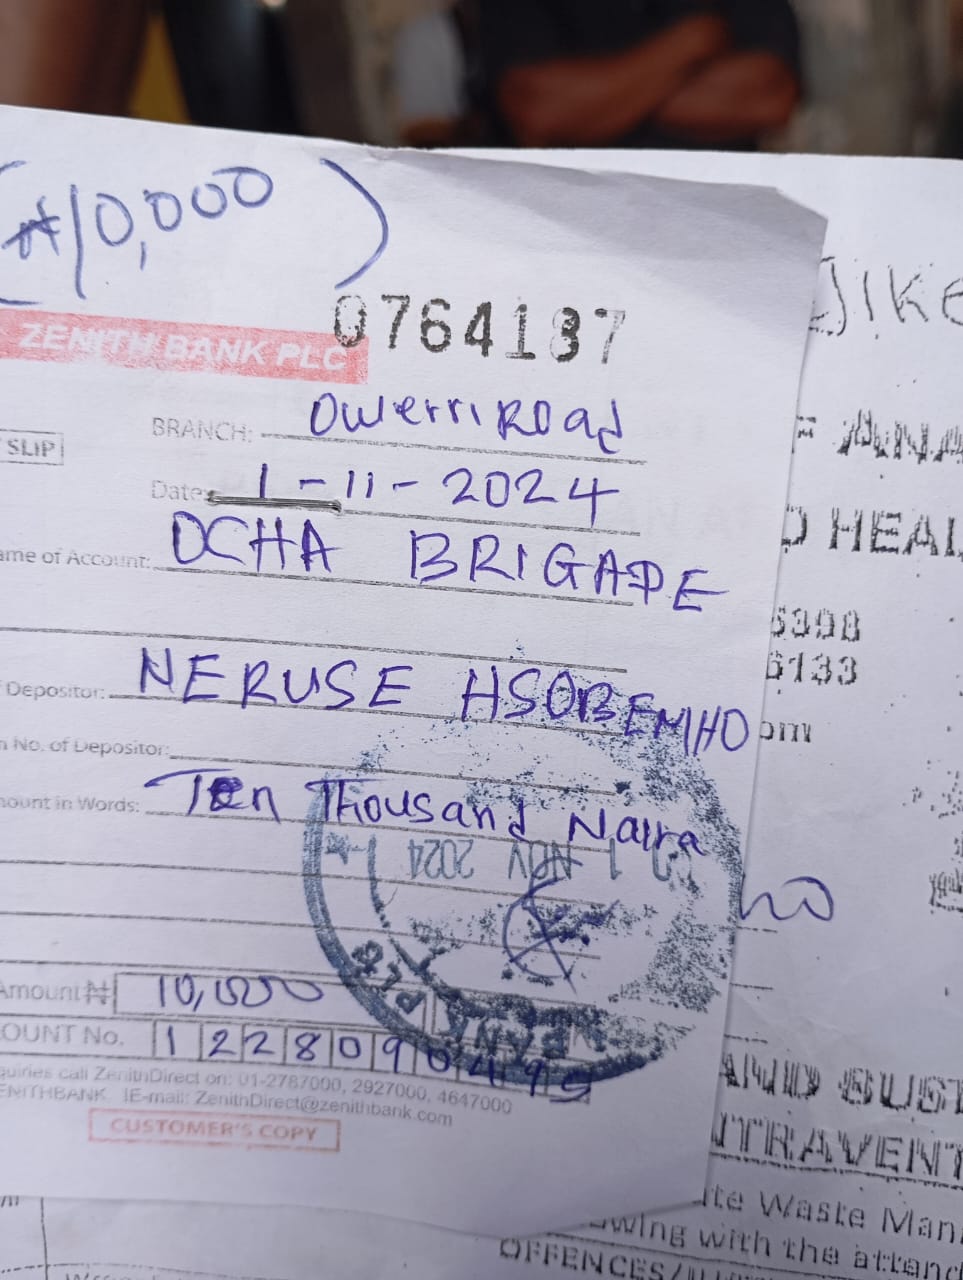 (₦10,000)
0764137
ZENITH BANK PLC
BRANCH: Owerri Road
SLIP
Date: 1-11-2024
ame of Account: OCHA BRIGADE
Depositor: NERUSE HSOBEMHO
n No. of Depositor:
ount in Words: Ten Thousand Naira
1 NOV 2024
Amount ₦ 10,000
OUNT No. 1228090495
quiries call ZenithDirect on: 01-2787000, 2927000, 4647000
ENITHBANK. IE-mail: ZenithDirect@zenithbank.com
CUSTOMER'S COPY
JIKE
F ANA
D HEAL
6398
6133
om
AND SUST
NTRAVENT
te Waste Man
owing with the attend
OFFENCES/